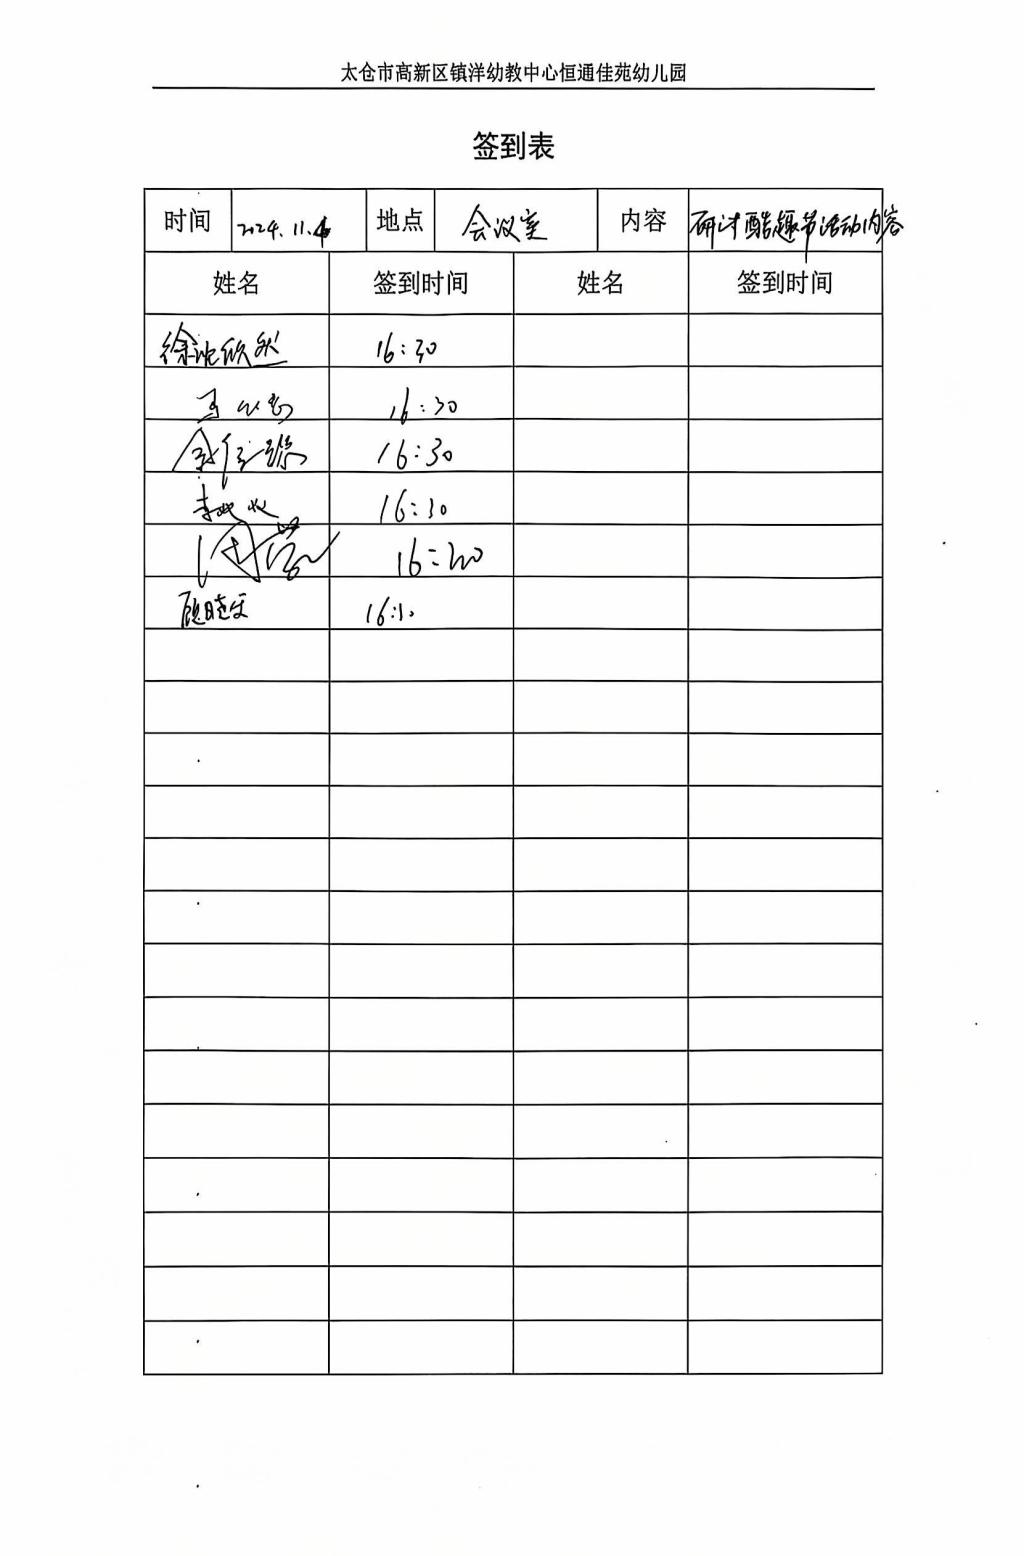 太仓市高新区镇洋幼教中心恒通佳苑幼儿园
签到表
时间 2024.11.4 地点 会议室 内容 研讨酷趣节活动内容
姓名 签到时间 姓名 签到时间
徐沈欣然 16:30
16:30
16:30
16:30
周莹
顾晓雯